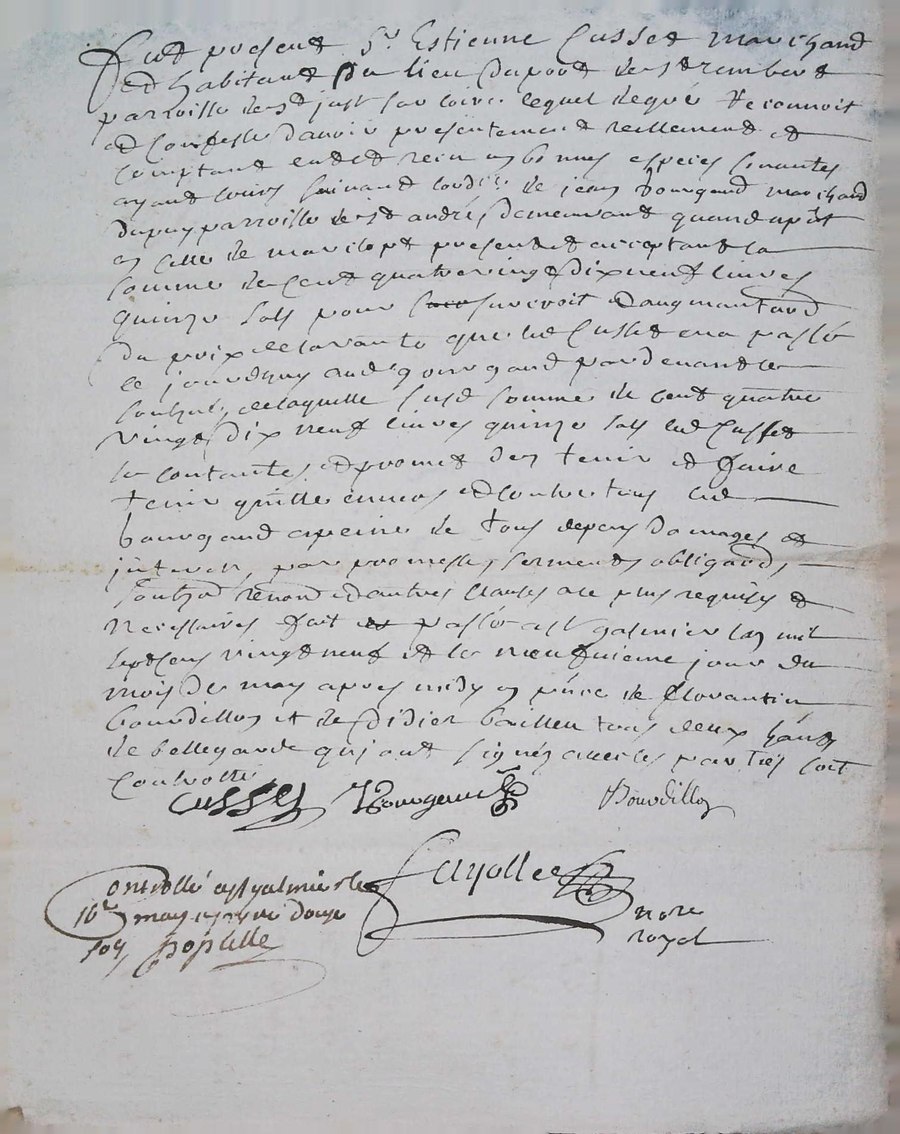 fut present Sr Estienne Cusset marchand
et habitant du lieu du port de st rembert
parroisse de st just sur loire lequel de gré reconnoit
et confesse d'avoir presentement reellement et
comptant eu et receu en bonnes especes sonantes
ayant cours suivant l'edit de jean bourgand marchand
du puy parroisse de st andré, demeurant quand apnt
en celle de marclopt present et acceptant la
somme de cent quatre vingt dix neuf livres
quinze sols pour survoit d'augmantaon
du prix de la vante que led Cusset en a passé
ce jourdhuy aud bourgand pardevant le
soubzné, de laquelle susd somme de cent quatre
vingt dix neuf livres quinze sols led Cusset
se contante, et promet den tenir et faire
tenir quitte envers et contre tous led
bourgand a peine de tous depens domages et
interets, par promesses, serments obligaons,
soubzon renon et autres clauses a ce plus requises et
necessaires fait et passé a st galmier lan mil
sept cens vingt neuf et le neufvieme jour du
mois de may apres midy en pñce de florantin
bourdillon et de didier bailleu tous deux hants
de bellegarde qui ont signés avec les parties soit
controllé
Cusset Bourgand Bourdillon
Fayolle
nore
royal
Controllé a st galmier le
10e may 1729 reçu douze
sols